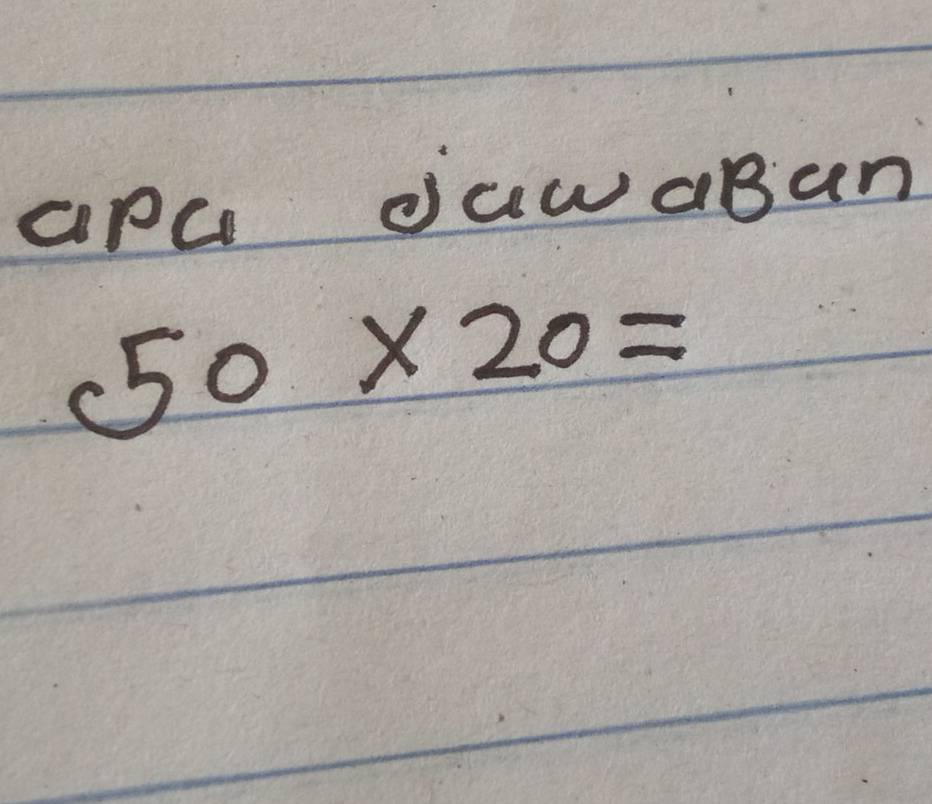 apa jawaban
50 x 20 =